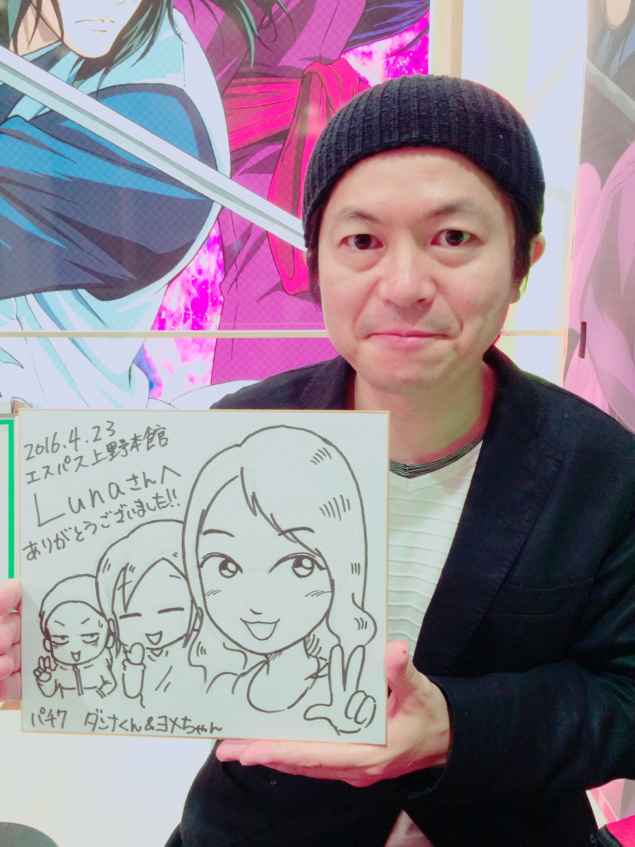 2016.4.23
エスパス上野本館
Lunaさんへ
ありがとうございました!!
パチ7 ダンナくん&ヨメちゃん